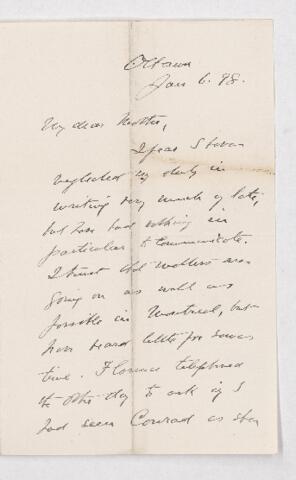 Ottawa
Jan 6. 98.
My dear Mother,
I fear I have
neglected my duty in
writing very much of late,
but have had nothing in
particular to communicate.
I trust that matters are
going on as well as
possible in Montreal, but
have heard little for some
time. Florence telephoned
the other day to ask if I
had seen Conrad as she